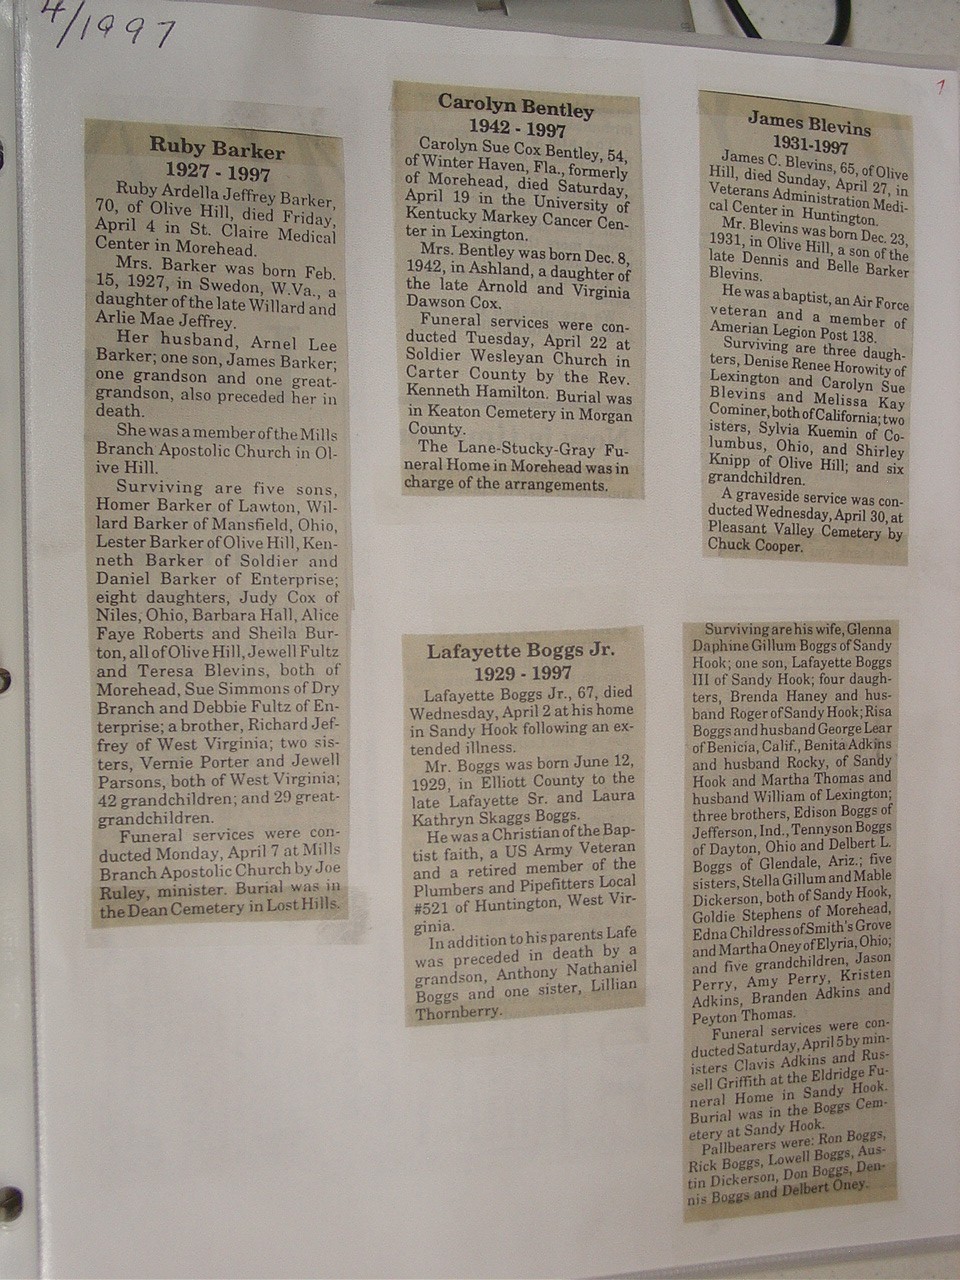 4/1997
7
Ruby Barker
1927 - 1997
Ruby Ardella Jeffrey Barker,
70, of Olive Hill, died Friday,
April 4 in St. Claire Medical
Center in Morehead.
Mrs. Barker was born Feb.
15, 1927, in Swedon, W.Va., a
daughter of the late Willard and
Arlie Mae Jeffrey.
Her husband, Arnel Lee
Barker; one son, James Barker;
one grandson and one great-
grandson, also preceded her in
death.
She was a member of the Mills
Branch Apostolic Church in Ol-
ive Hill.
Surviving are five sons,
Homer Barker of Lawton, Wil-
lard Barker of Mansfield, Ohio,
Lester Barker of Olive Hill, Ken-
neth Barker of Soldier and
Daniel Barker of Enterprise;
eight daughters, Judy Cox of
Niles, Ohio, Barbara Hall, Alice
Faye Roberts and Sheila Bur-
ton, all of Olive Hill, Jewell Fultz
and Teresa Blevins, both of
Morehead, Sue Simmons of Dry
Branch and Debbie Fultz of En-
terprise; a brother, Richard Jef-
frey of West Virginia; two sis-
ters, Vernie Porter and Jewell
Parsons, both of West Virginia;
42 grandchildren; and 29 great-
grandchildren.
Funeral services were con-
ducted Monday, April 7 at Mills
Branch Apostolic Church by Joe
Ruley, minister. Burial was in
the Dean Cemetery in Lost Hills.
Carolyn Bentley
1942 - 1997
Carolyn Sue Cox Bentley, 54,
of Winter Haven, Fla., formerly
of Morehead, died Saturday,
April 19 in the University of
Kentucky Markey Cancer Cen-
ter in Lexington.
Mrs. Bentley was born Dec. 8,
1942, in Ashland, a daughter of
the late Arnold and Virginia
Dawson Cox.
Funeral services were con-
ducted Tuesday, April 22 at
Soldier Wesleyan Church in
Carter County by the Rev.
Kenneth Hamilton. Burial was
in Keaton Cemetery in Morgan
County.
The Lane-Stucky-Gray Fu-
neral Home in Morehead was in
charge of the arrangements.
James Blevins
1931-1997
James C. Blevins, 65, of Olive
Hill, died Sunday, April 27, in
Veterans Administration Medi-
cal Center in Huntington.
Mr. Blevins was born Dec. 23,
1931, in Olive Hill, a son of the
late Dennis and Belle Barker
Blevins.
He was a baptist, an Air Force
veteran and a member of
Amerian Legion Post 138.
Surviving are three daugh-
ters, Denise Renee Horowity of
Lexington and Carolyn Sue
Blevins and Melissa Kay
Cominer, both of California; two
isters, Sylvia Kuemin of Co-
lumbus, Ohio, and Shirley
Knipp of Olive Hill; and six
grandchildren.
A graveside service was con-
ducted Wednesday, April 30, at
Pleasant Valley Cemetery by
Chuck Cooper.
Lafayette Boggs Jr.
1929 - 1997
Lafayette Boggs Jr., 67, died
Wednesday, April 2 at his home
in Sandy Hook following an ex-
tended illness.
Mr. Boggs was born June 12,
1929, in Elliott County to the
late Lafayette Sr. and Laura
Kathryn Skaggs Boggs.
He was a Christian of the Bap-
tist faith, a US Army Veteran
and a retired member of the
Plumbers and Pipefitters Local
#521 of Huntington, West Vir-
ginia.
In addition to his parents Lafe
was preceded in death by a
grandson, Anthony Nathaniel
Boggs and one sister, Lillian
Thornberry.
Surviving are his wife, Glenna
Daphine Gillum Boggs of Sandy
Hook; one son, Lafayette Boggs
III of Sandy Hook; four daugh-
ters, Brenda Haney and hus-
band Roger of Sandy Hook; Risa
Boggs and husband George Lear
of Benicia, Calif., Benita Adkins
and husband Rocky, of Sandy
Hook and Martha Thomas and
husband William of Lexington;
three brothers, Edison Boggs of
Jefferson, Ind., Tennyson Boggs
of Dayton, Ohio and Delbert L.
Boggs of Glendale, Ariz.; five
sisters, Stella Gillum and Mable
Dickerson, both of Sandy Hook,
Goldie Stephens of Morehead,
Edna Childress of Smith's Grove
and Martha Oney of Elyria, Ohio;
and five grandchildren, Jason
Perry, Amy Perry, Kristen
Adkins, Branden Adkins and
Peyton Thomas.
Funeral services were con-
ducted Saturday, April 5 by min-
isters Clavis Adkins and Rus-
sell Griffith at the Eldridge Fu-
neral Home in Sandy Hook.
Burial was in the Boggs Cem-
etery at Sandy Hook.
Pallbearers were: Ron Boggs,
Rick Boggs, Lowell Boggs, Aus-
tin Dickerson, Don Boggs, Den-
nis Boggs and Delbert Oney.